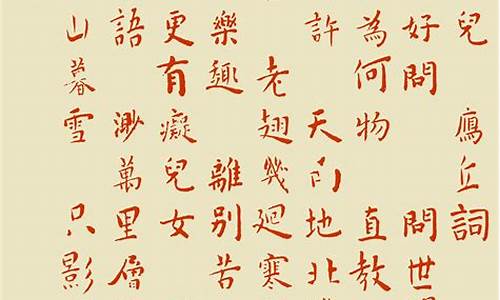 兒 鴈丘詞
好問 問世
為何物 直教
許 天南地北
老翅幾廻寒
樂趣 離別苦
更有癡兒女
語 渺萬里層
山暮雪 只影